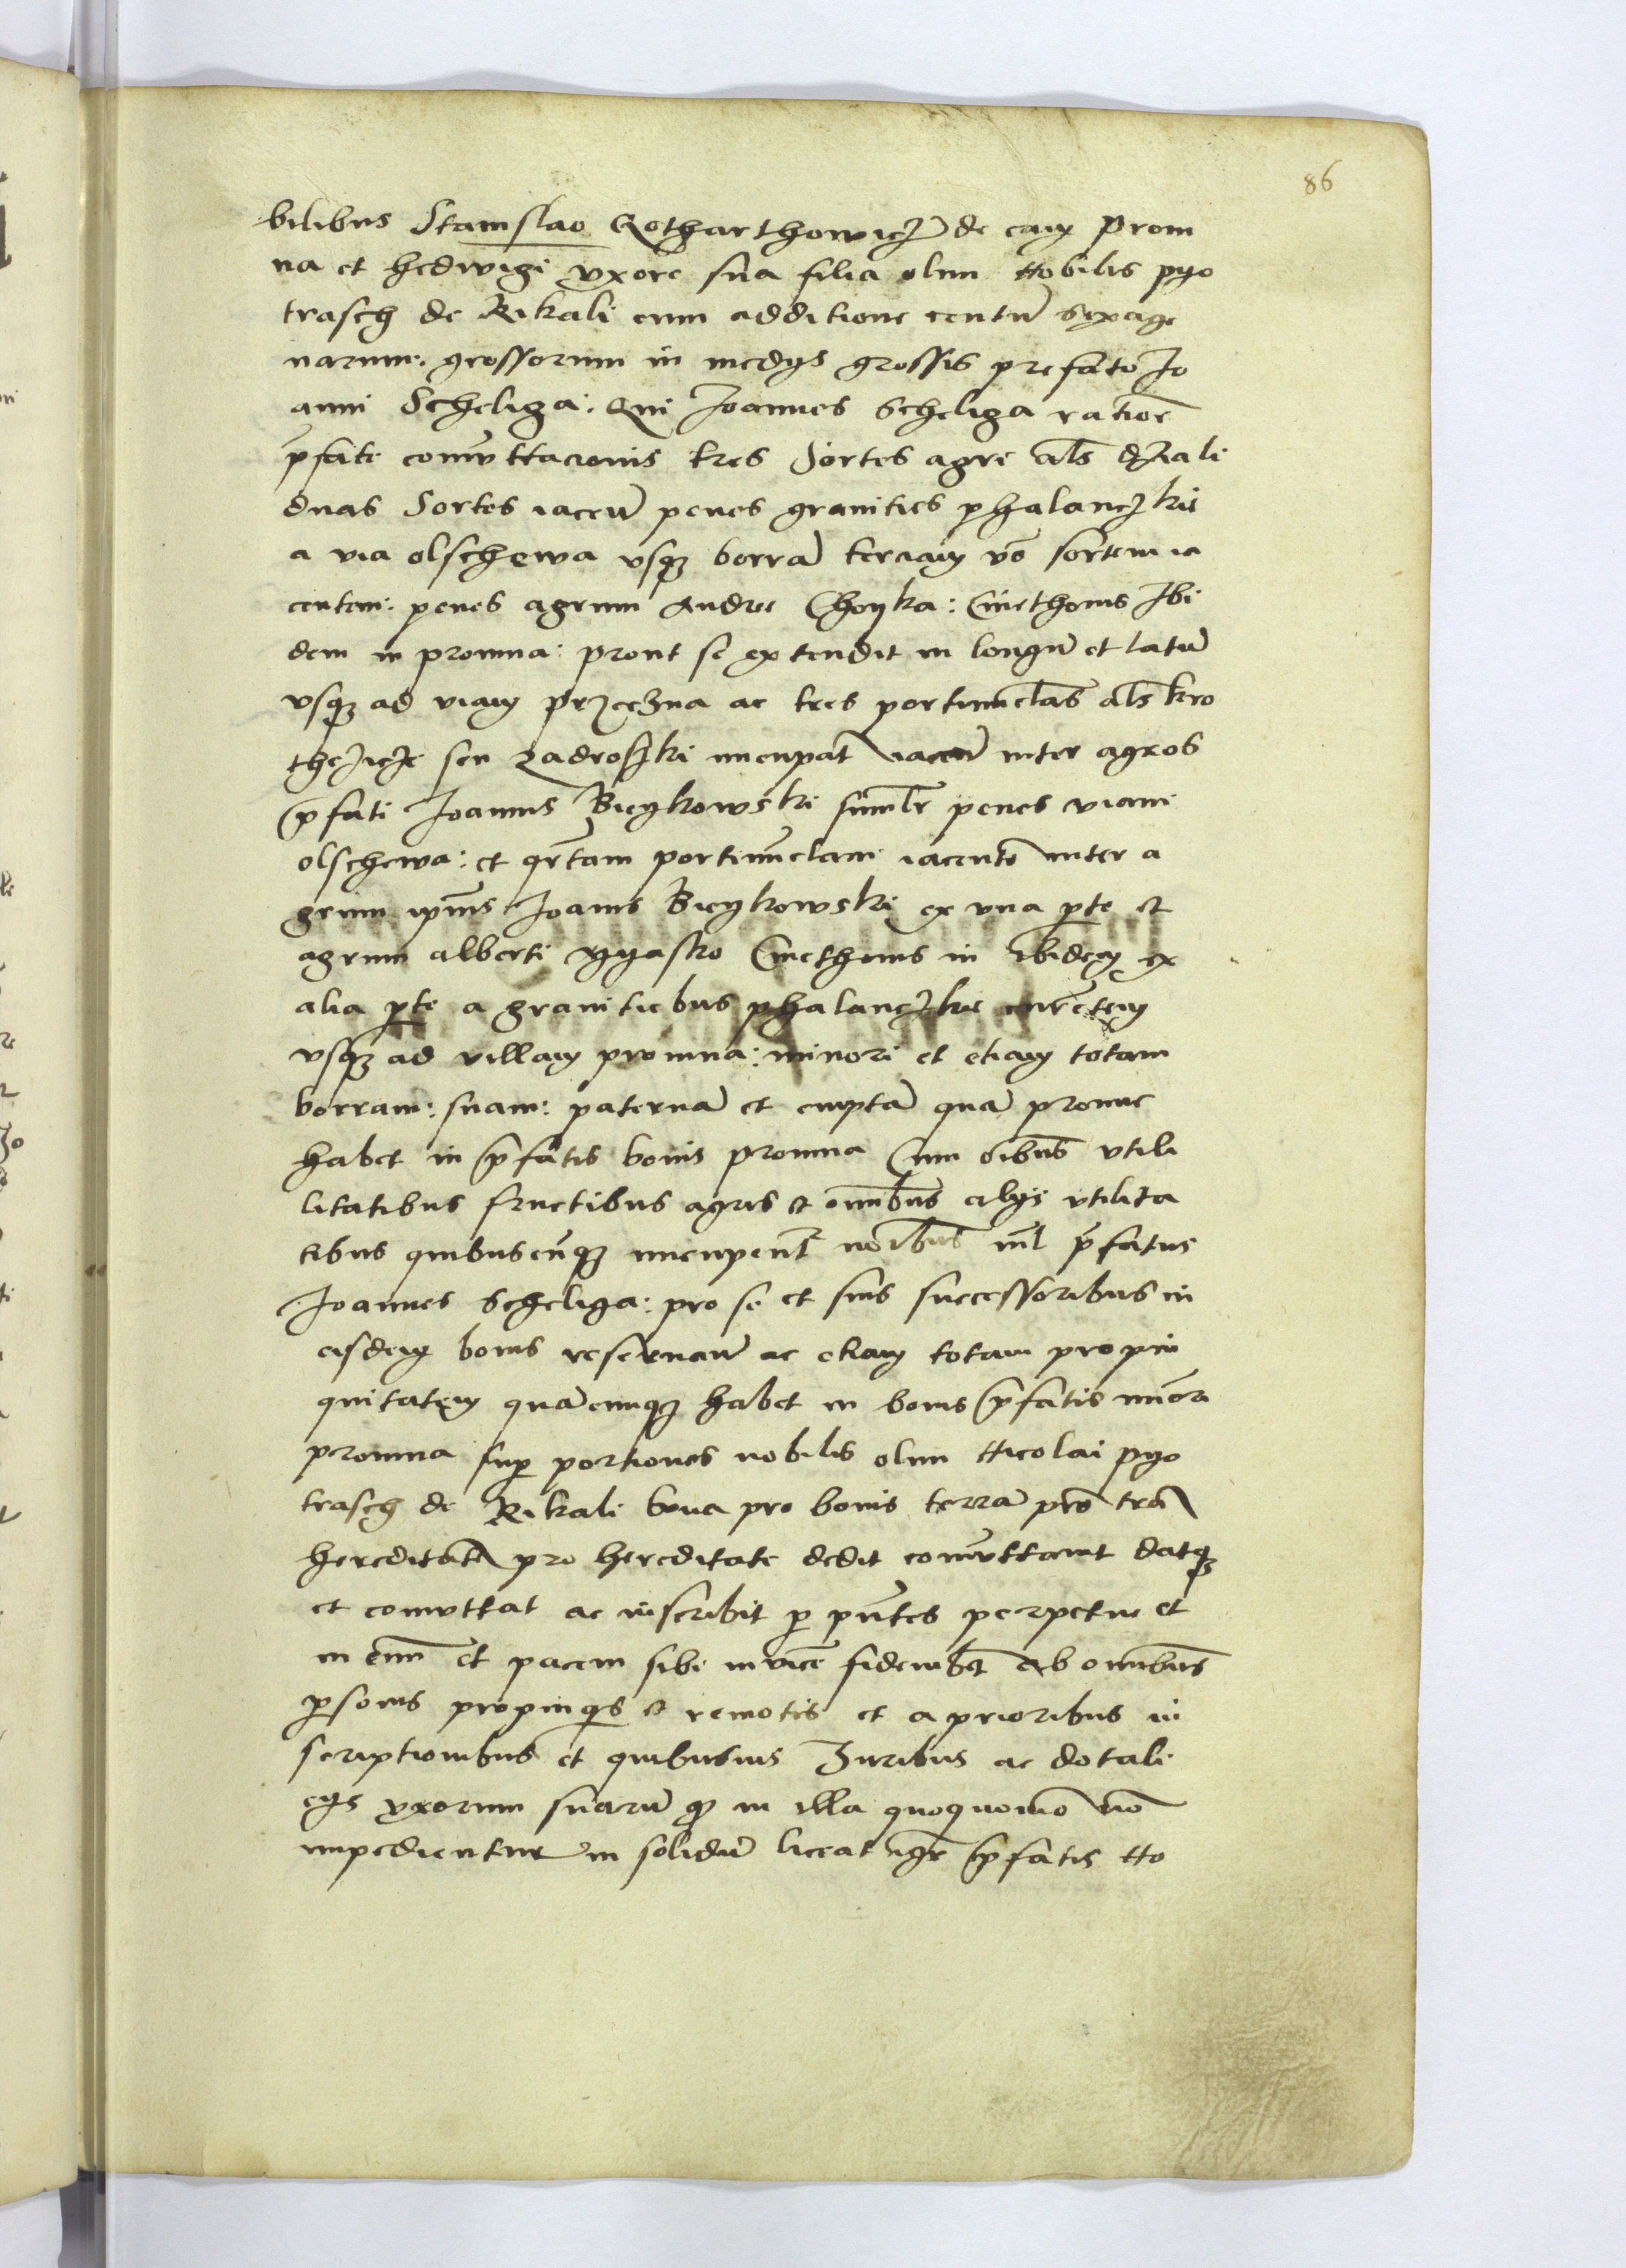 86
bilibus Stanislao Gotharthowicz de eayn Prom
na et hedwigi vxore sua filia olim Nobilis pyo
trasch de Rikali cum additione centū sexage
narum: grossorum in medys grossis prefato Jo
anni Scheliga: Qui Joannes Scheliga ratiōe
p̄fate comūttacionis tres Sortes agri al̄s dziali
duas Sortes iaceñ penes granities phalanczkie
a via olschewa vsqʒ borrā terciam vō sortem ia
centem: penes agrum Andree Choyka: Cmethonis Ibi
dem in promna: prout se extendit in longū et latū
vsqʒ ad viam przeczna ac tres portiunclas al̄s kro
thczicze seu Zadroszki nuncupat̄ iaceñ inter agros
p̄fati Joannis Bieykowski simlr̄ penes viam
olschewa: et qr̄tam portiunclam iacentē inter a
grum ip̄ius Joanis Bieykowski ex vna p̱te et
agrum alberti Cmethonis in ibidem ex
alia p̱te a granitiebus phalanczkie
vsqʒ ad villam promna: minori et etiam totam
borram: suam: paternā et emptā quā pronunc
habet in p̄fatis bonis promna Cum oībus vtili
litatibus fructibus agris et omībus alys vtilita
tibus quibuscūqʒ nuncupent̄ noībus nil p̄fatus
Joannes Scheliga: pro se et suis successoribus in
eisdem bonis reseruañ ac etiam totam propin
quitatem quamcunqʒ habet in bonis p̄fatis minōri
promna sup̱ portiones nobilis olim Nicolai pyo
trasch de Rikali bona pro bonis terrā pro trā
hereditatē pro hereditate dedit comūttauit datqʒ
et comuttat ac inscribit p̱ pn̄tes perpetue et
in euū et pacem sibi inuicē fideiubēt ab omībus
p̱sonis propinqis et remotis et a prioribus in
scriptionibus et quibusuis Juribus ac dotali
cys vxorum suarū qđ in illa quoquomō nō
impedientur in solidū liceat igr̄ p̄fatis No